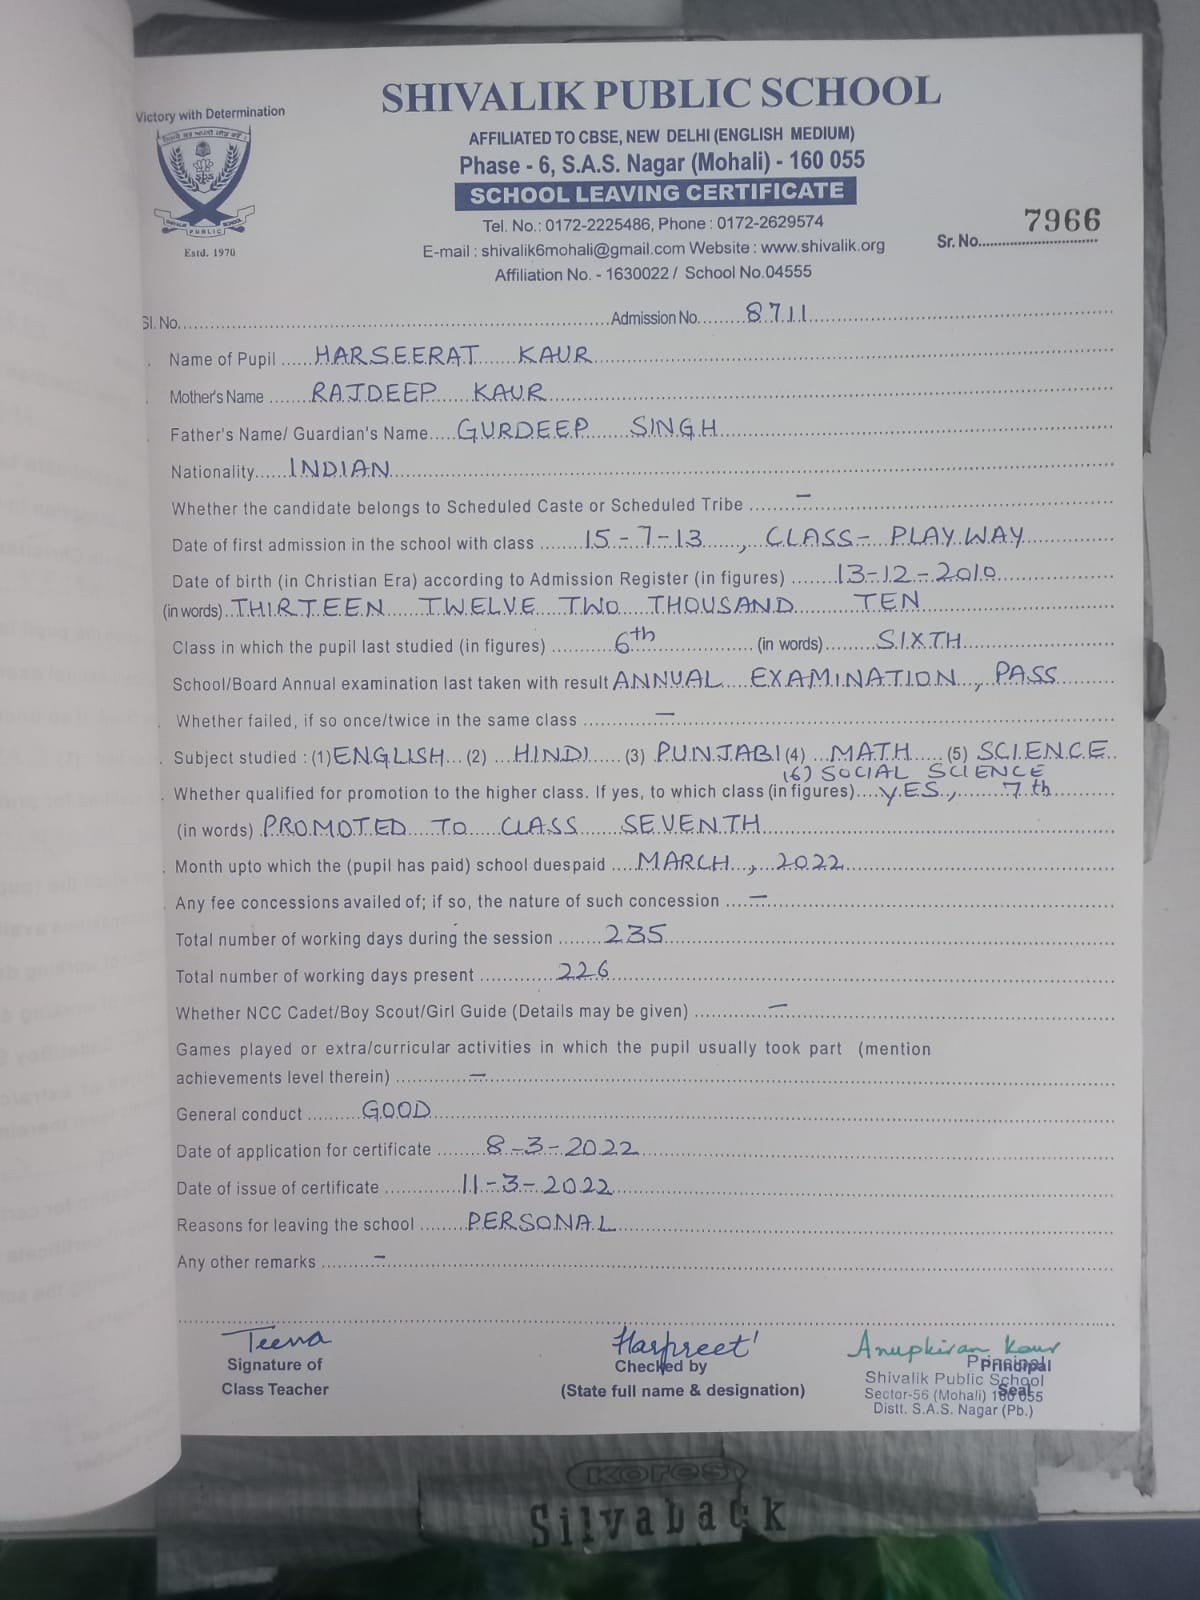 SHIVALIK PUBLIC SCHOOL
Victory with Determination
AFFILIATED TO CBSE, NEW DELHI (ENGLISH MEDIUM)
Phase - 6, S.A.S. Nagar (Mohali) - 160 055
SCHOOL LEAVING CERTIFICATE
Tel. No.: 0172-2225486, Phone : 0172-2629574
E-mail : shivalik6mohali@gmail.com Website : www.shivalik.org
Affiliation No. - 1630022 / School No.04555
SPS
SHIVALIK PUBLIC SCHOOL
Estd. 1970
Sr. No. 7966
Sl. No. Admission No. 8711
Name of Pupil HARSEERAT KAUR
Mother's Name RAJDEEP KAUR
Father's Name/ Guardian's Name GURDEEP SINGH
Nationality INDIAN
Whether the candidate belongs to Scheduled Caste or Scheduled Tribe –
Date of first admission in the school with class 15-7-13, CLASS- PLAYWAY
Date of birth (in Christian Era) according to Admission Register (in figures) 13-12-2010
(in words) THIRTEEN TWELVE TWO THOUSAND TEN
Class in which the pupil last studied (in figures) 6th (in words) SIXTH
School/Board Annual examination last taken with result ANNUAL EXAMINATION, PASS
Whether failed, if so once/twice in the same class –
Subject studied : (1) ENGLISH (2) HINDI (3) PUNJABI (4) MATH (5) SCIENCE
(6) SOCIAL SCIENCE
Whether qualified for promotion to the higher class. If yes, to which class (in figures) YES, 7th
(in words) PROMOTED TO CLASS SEVENTH
Month upto which the (pupil has paid) school duespaid MARCH, 2022
Any fee concessions availed of; if so, the nature of such concession –
Total number of working days during the session 235
Total number of working days present 226
Whether NCC Cadet/Boy Scout/Girl Guide (Details may be given) –
Games played or extra/curricular activities in which the pupil usually took part (mention
achievements level therein) –
General conduct GOOD
Date of application for certificate 8-3-2022
Date of issue of certificate 11-3-2022
Reasons for leaving the school PERSONAL
Any other remarks –
Teena
Signature of
Class Teacher
Harpreet
Checked by
(State full name & designation)
Anupkiran Kaur
Principal
Principal
Seal
Shivalik Public School
Sector-56 (Mohali) 160 055
Distt. S.A.S. Nagar (Pb.)
Kores
Silvaback